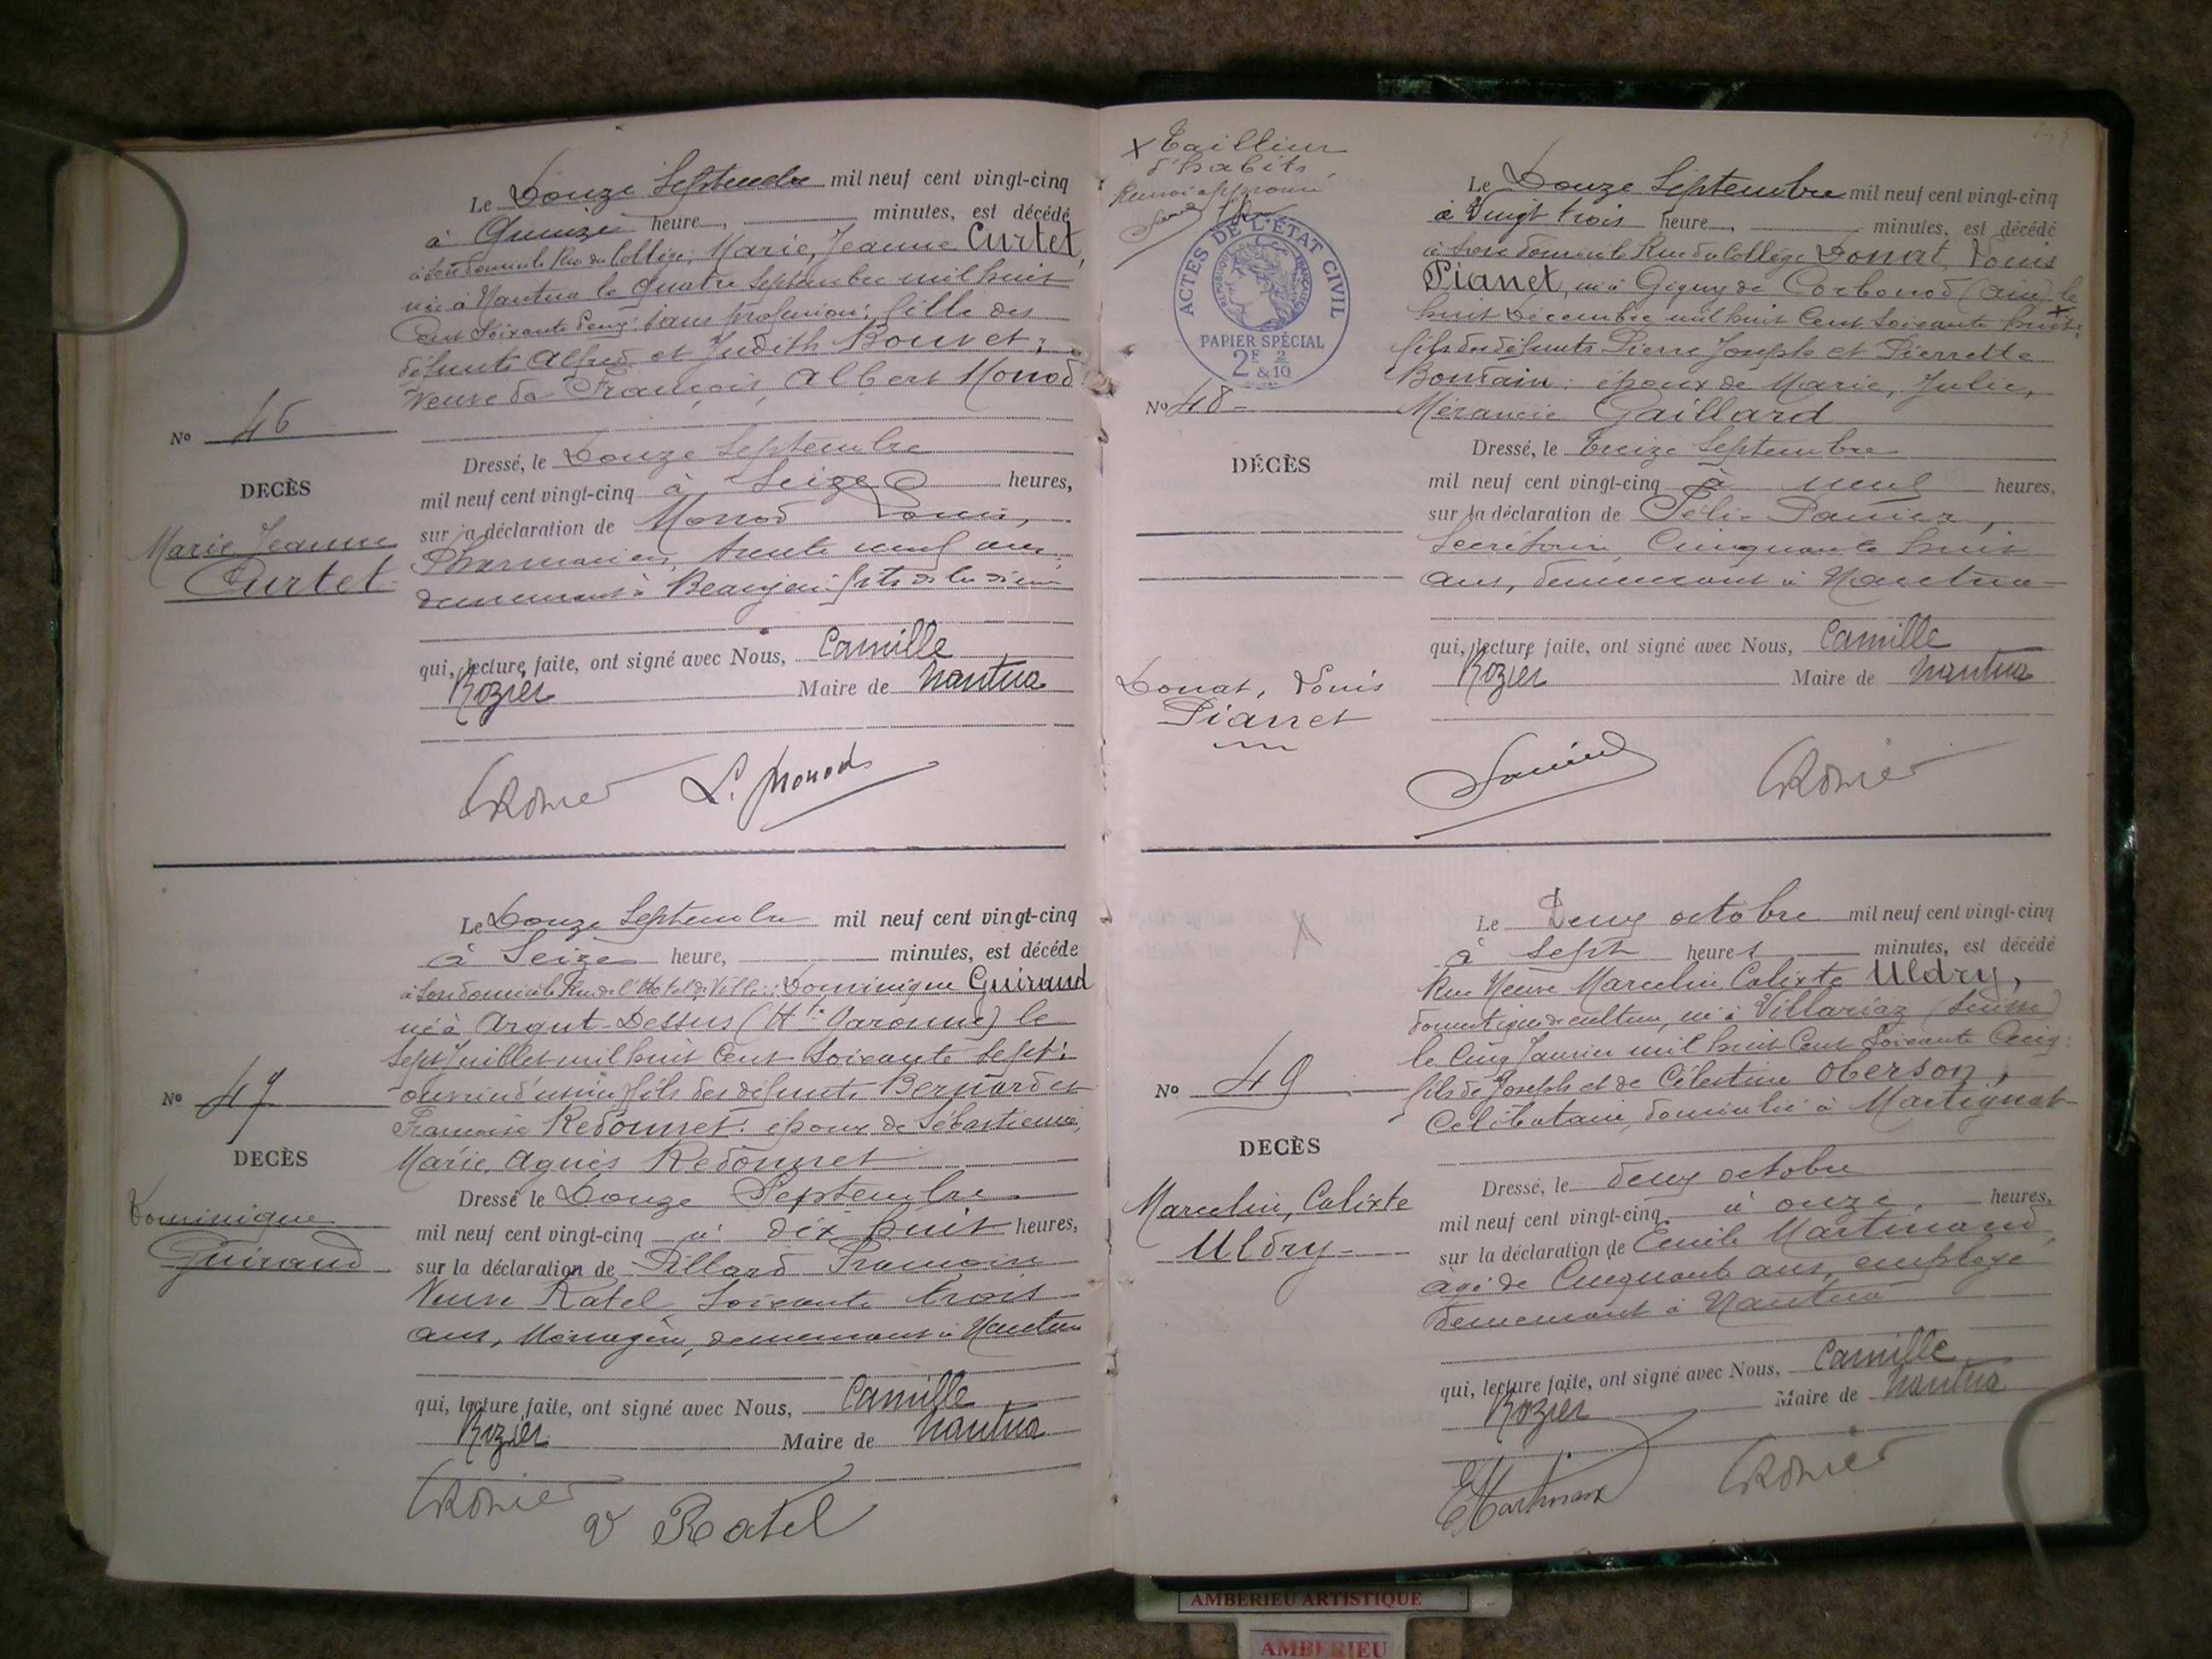 Le Douze Septembre mil neuf cent vingt-cinq
à Quinze heure, minutes, est décédé
à son domicile Rue du Collège, Marie, Jeanne Curtet,
née à Nantua le quatre Septembre mil huit
Cent Soixante Deux: sans profession: fille des
défunts Alfred et Judith Bouvet;
Veuve de François, Albert Monod
No 46
Dressé, le Douze Septembre
DECÈS
mil neuf cent vingt-cinq à Seize heures,
sur la déclaration de Monod Louis,
Marie Jeanne
Curtet
Pharmacien, trente neuf ans,
demeurant à Beaujeu: fils de la
qui, lecture faite, ont signé avec Nous, Camille
Rozier Maire de Nantua
CRozier L. Monod
Le Douze Septembre mil neuf cent vingt-cinq
à Seize heure, minutes, est décédé
à son domicile Rue de l'Hotel de Ville: Dominique Guiraud
né à Argut-Dessus (Hte Garonne) le
Sept Juillet mil huit Cent Soixante Sept:
ouvrier d'usine, fils des défunts Bernard et
No 47
Françoise Redonnet: époux de Sébastienne,
Marie, Agnès Redonnet
DECÈS
Dressé le Douze Septembre
Dominique
Guiraud
mil neuf cent vingt-cinq à dix huit heures,
sur la déclaration de Pillard Françoise
Veuve Ratel, Soixante trois
ans, Ménagère, demeurant à Nantua
qui, lecture faite, ont signé avec Nous, Camille
Rozier Maire de Nantua
CRozier
V Ratel
x Tailleur
d'habits,
Renvoi approuvé
ACTES DE L'ÉTAT CIVIL
RÉPUBLIQUE FRANÇAISE
PAPIER SPÉCIAL
2F & 2/10
Le Douze Septembre mil neuf cent vingt-cinq
à Vingt trois heure, minutes, est décédé
à son domicile Rue du Collège Donat, Louis
Pianet, né à Gigny de Corbonod (Ain) le
huit Décembre mil huit Cent Soixante huit: x
fils des défunts Pierre Joseph et Pierrette
Bontain: époux de Marie, Julie,
No 48
Mérancie Gaillard
Dressé, le treize Septembre
DÉCÈS
mil neuf cent vingt-cinq à neuf heures,
sur la déclaration de Félix Panier,
Secrétaire, Cinquante huit
ans, demeurant à Nantua
qui, lecture faite, ont signé avec Nous, Camille
Rozier Maire de Nantua
Donat, Louis
Pianet
CRozier
Le Deux octobre mil neuf cent vingt-cinq
à Sept heures minutes, est décédé
Rue Neuve Marcelin Calixte Uldry,
domestique de culture, né à Villariaz (Suisse)
le Cinq Janvier mil huit Cent Soixante Cinq:
fils de Joseph et de Célestine Oberson,
Célibataire, domicilié à Martignat
No 49
DECÈS
Dressé, le deux octobre
Marcelin, Calixte
Uldry
mil neuf cent vingt-cinq à onze heures,
sur la déclaration de Emile Martinand,
âgé de Cinquante ans, employé
demeurant à Nantua
qui, lecture faite, ont signé avec Nous, Camille
Rozier Maire de Nantua
CRozier
AMBERIEU ARTISTIQUE
AMBERIEU